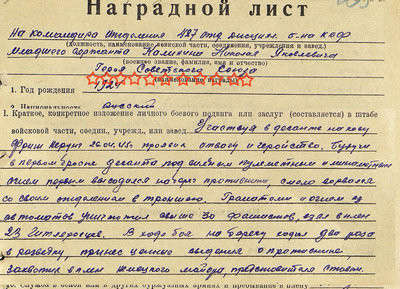 Наградной лист
На командира отделения 487 отд. дисцип. б-на КБФ
(должность, наименование воинской части, соединения, учреждения и завед.)
Младшего сержанта Калинина Николая Яковлевича
(военное звание, фамилия, имя и отчество)
Героя Советского Союза
(наименование награды)
1. Год рождения 1924
2. Национальность русский
I. Краткое, конкретное изложение личного боевого подвига или заслуг (составляется) в штабе
войсковой части, соедин., учрежд., или завед. Участвуя в десанте на косу
Фриш Нерунг 26.04.45г. проявил отвагу и геройство. Будучи
в первом броске десанта под сильным пулеметным и минометным
огнем первым высадился на берег противника, смело ворвался
со своим отделением в траншею. Гранатами и огнем из
автоматов уничтожил свыше 30 фашистов, взял в плен
23 гитлеровцев. В ходе боя на берегу ходил два раза
в разведку, принес ценные сведения о противнике,
захватил в плен немецкого майора, представителя ставки.
10. Служба в белой или в других буржуазных армиях и пребывание в плену